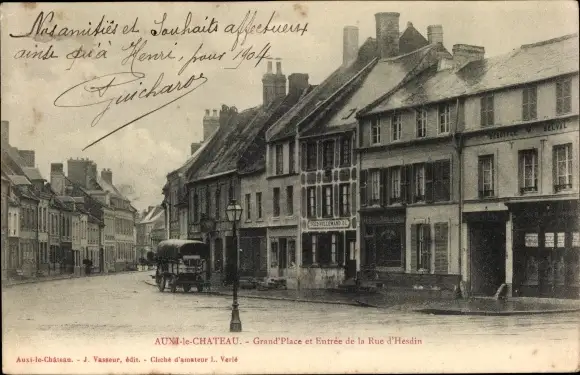 Nos amitiés et Souhaits affectueux
ainsi qu'à Henri, pour 1904
Guichard
AUXI-le-CHATEAU. - Grand'Place et Entrée de la Rue d'Hesdin
Auxi-le-Château. - J. Vasseur, édit. - Cliché d'amateur L. Verlé